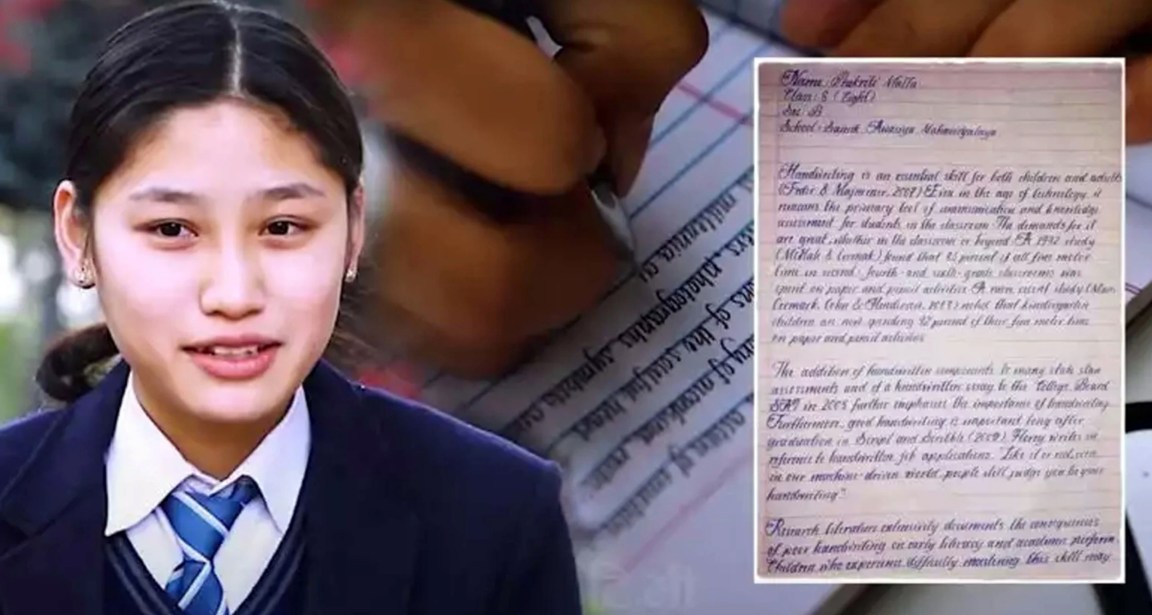 Name: Prakriti Malla
Class: 8 (Eight)
Sec: B
School: Sainik Awasiya Mahavidyalaya
Handwriting is an essential skill for both children and adults
(Feder & Majnemer, 2007) Even in the age of technology, it
remains the primary tool of communication and knowledge
assessment for students in the classroom. The demands for it
are great, whether in the classroom or beyond. A 1992 study
(McHale & Cermak) found that 85 percent of all fine motor
time in second- fourth- and sixth- grade classrooms was
spent on paper and pencil activities. A more recent study (Marr,
Cermak, Cohn & Henderson, 2003) noted that kindergarten
children are now spending 42 percent of their fine motor time
on paper and pencil activities
The addition of handwritten components to many state
assessments and of a handwritten essay to the College Board
SAT in 2005 further emphasize the importance of handwriting
Furthermore, good handwriting is important long after
graduation in Script and Scribble (2009) Florey writes in
reference to handwritten job applications. "Like it or not, even
in our machine-driven world, people still judge you by your
handwriting."
Research literature extensively documents the consequences
of poor handwriting on early literacy and academic perform
Children who experience difficulty mastering this skill may
millennia
photographs symbols
of the sculpted
of ancient